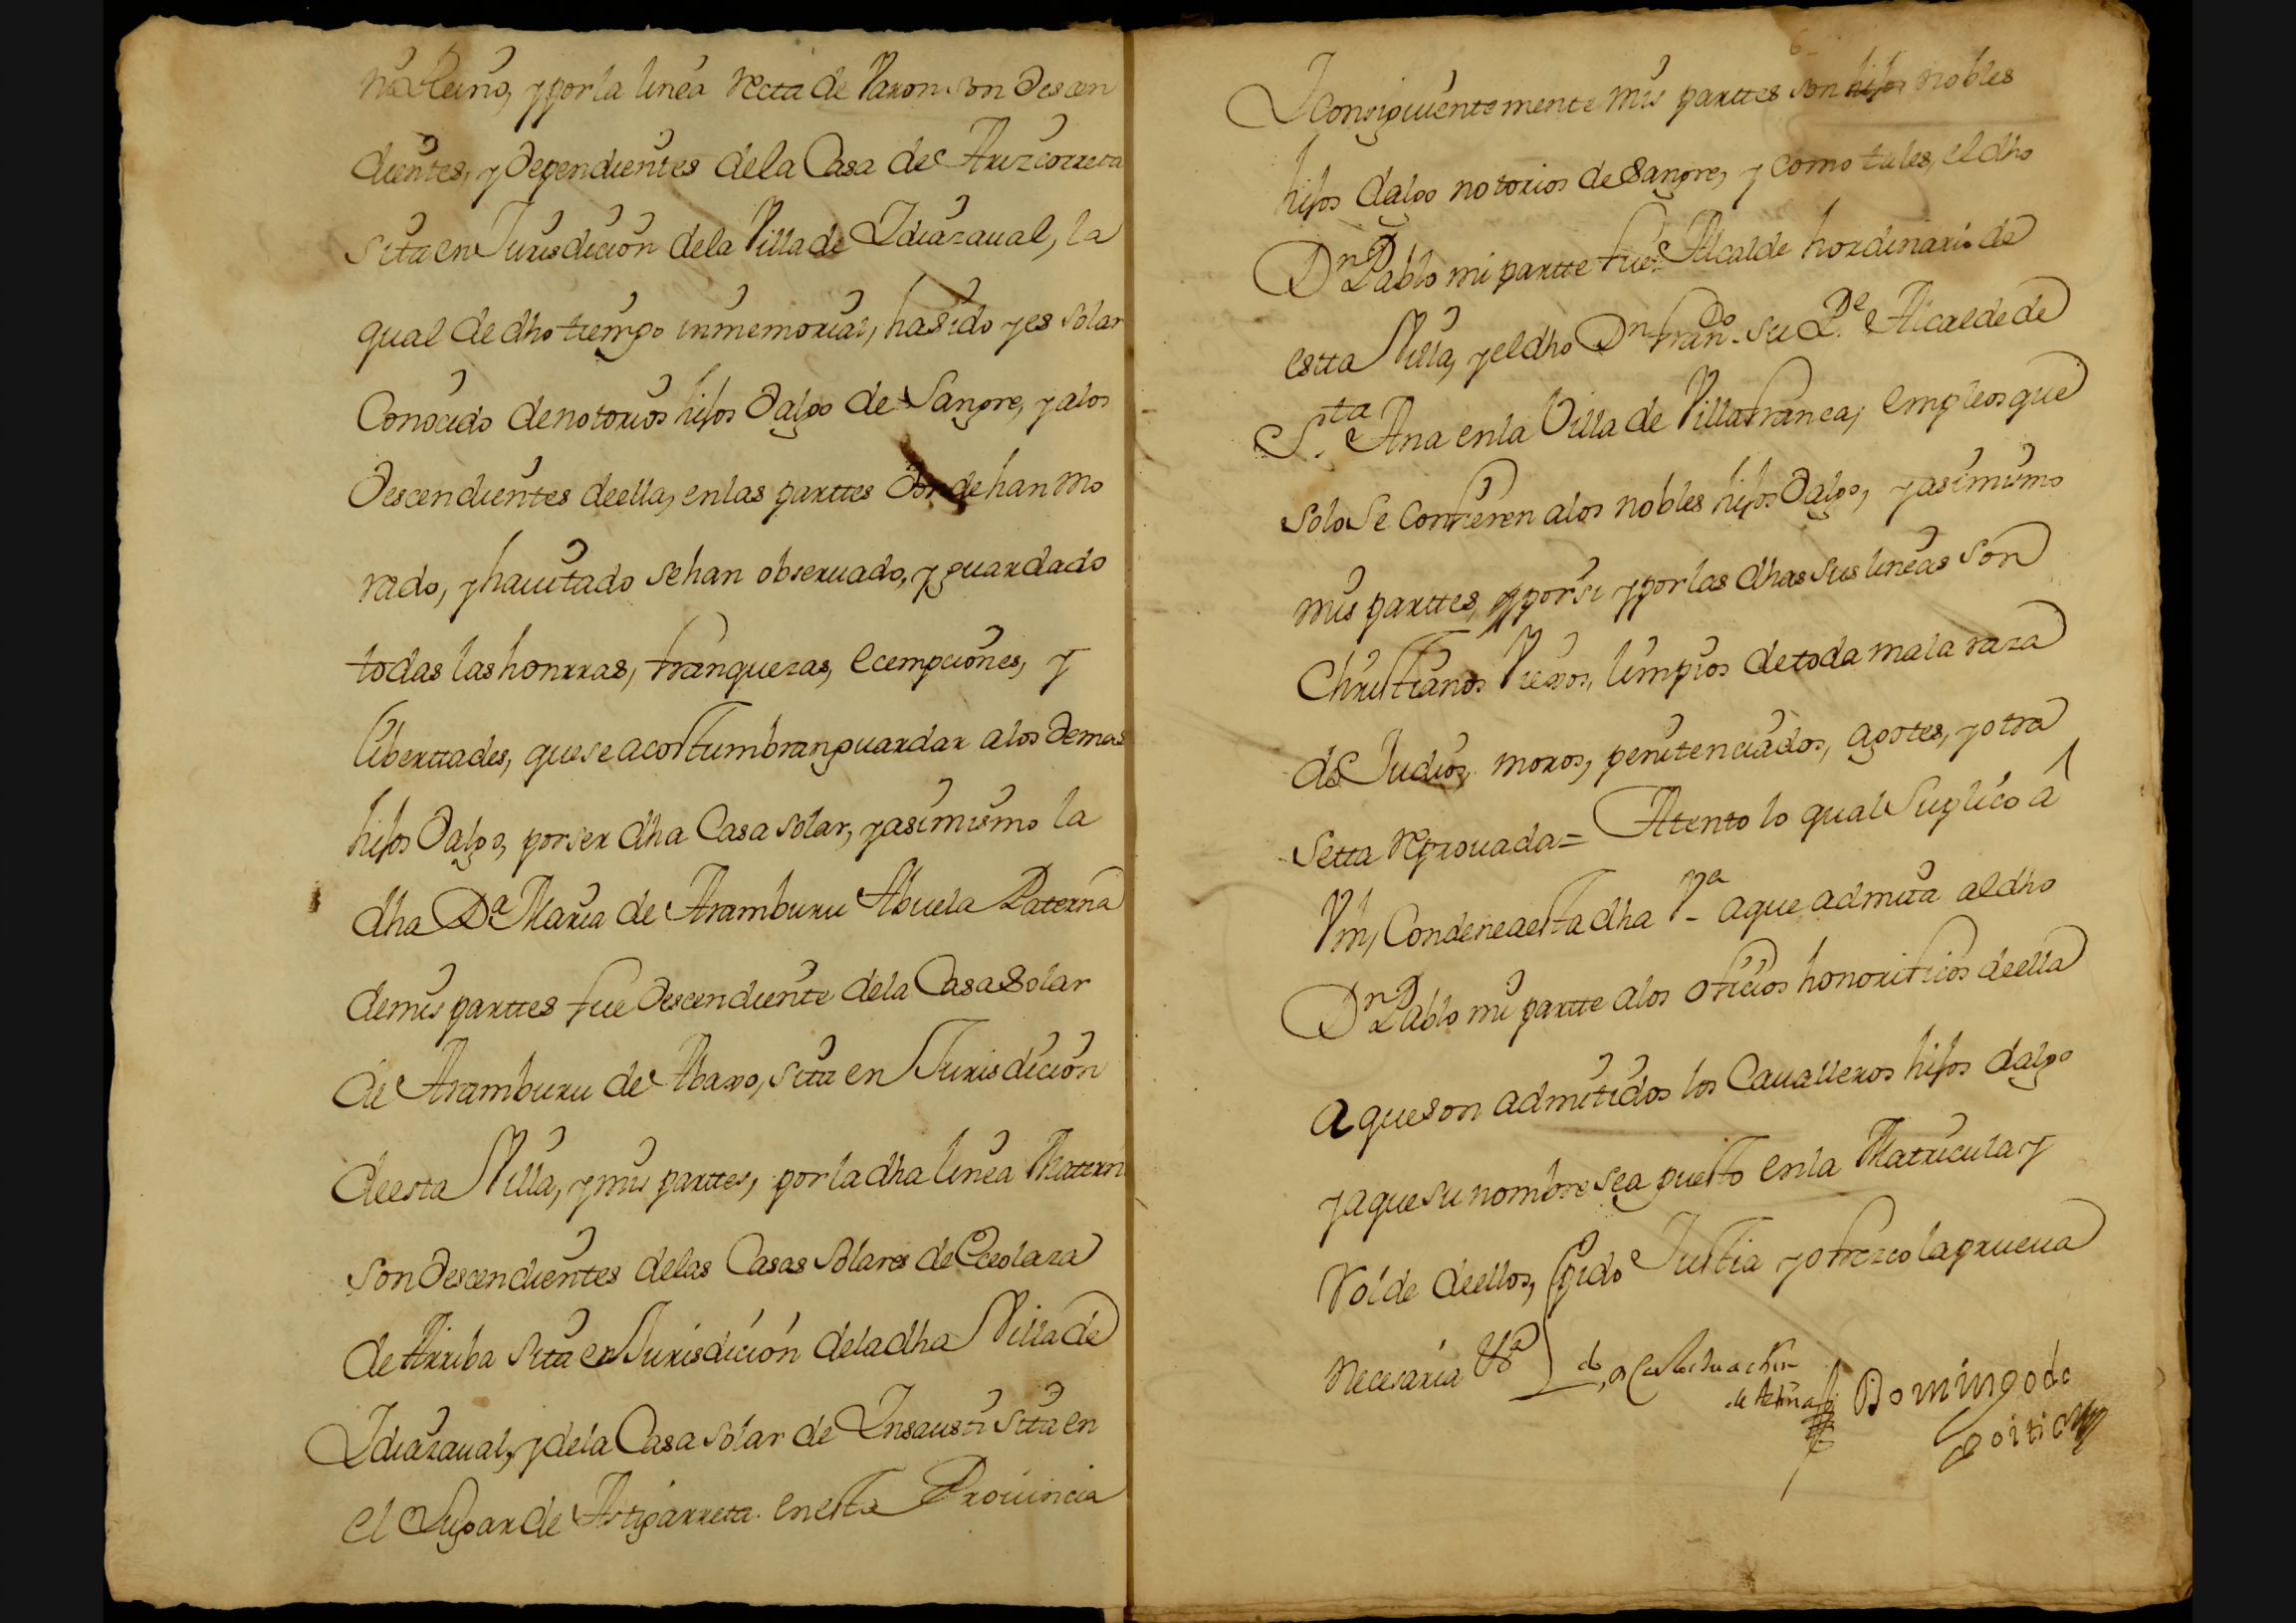 no Reino, y por la linea Recta de Varon son Descen
dientes, y Dependientes dela Casa de Arizcorreta
sita en Jurisdicion dela Villa de Idiazaual, la
qual de dho tiempo inmemorial, ha sido y es solar
Conocido de notorios hijos Dalgo de Sangre, y alos
Descendientes deella, en las parttes donde han mo
rado, y hauitado se han obseruado, y guardado
todas las honrras, franquezas, ecempciones, y
liberttades, que se acostumbran guardar alos Demas
hijos Dalgo, por ser dha Casa solar, y asimismo la
dha Da. Maria de Aramburu Abuela Paterna
de mis parttes fue Descendiente dela Casa Solar
de Aramburu de Abaxo, sita en Jurisdicion
de esta Villa, y mis parttes, por la dha linea Matern
son Descendientes delas Casas Solares de Eceolaza
de Arriba sita en Jurisdicion dela dha Villa de
Idiazaual, y dela Casa solar de Insausti sita en
el Lugar de Astigarreta en esta Prouincia
6
Iconsiguientemente mis parttes son hijos nobles
hijos dalgo notorios de Sangre, y como tales, el dho
Dn. Pablo mi partte fue Alcalde hordinario de
estta Villa, y el dho Dn. Franco. su Pe. Alcalde de
Sta. Ana en la Villa de Villafranca, empleos que
solo se confieren alos nobles hijos Dalgo, y asimismo
mis parttes, por si y por las dhas sus lineas son
Christianos Viexos, limpios de toda mala raza
de Judios, moros, penitenciados, agotes, y otra
setta reprouada = Atento lo qual Suplico â
Vm, Condene a esta dha Va. a que admita al dho
Dn. Pablo mi partte alos oficios honorificos deella
a que son admitidos los Caualleros hijos dalgo
y a que su nombre sea puesto en la Matricula y
Rolde deellos, pido Justia y ofrezco la prueua
necesaria Va.
Domingo de
Goitia